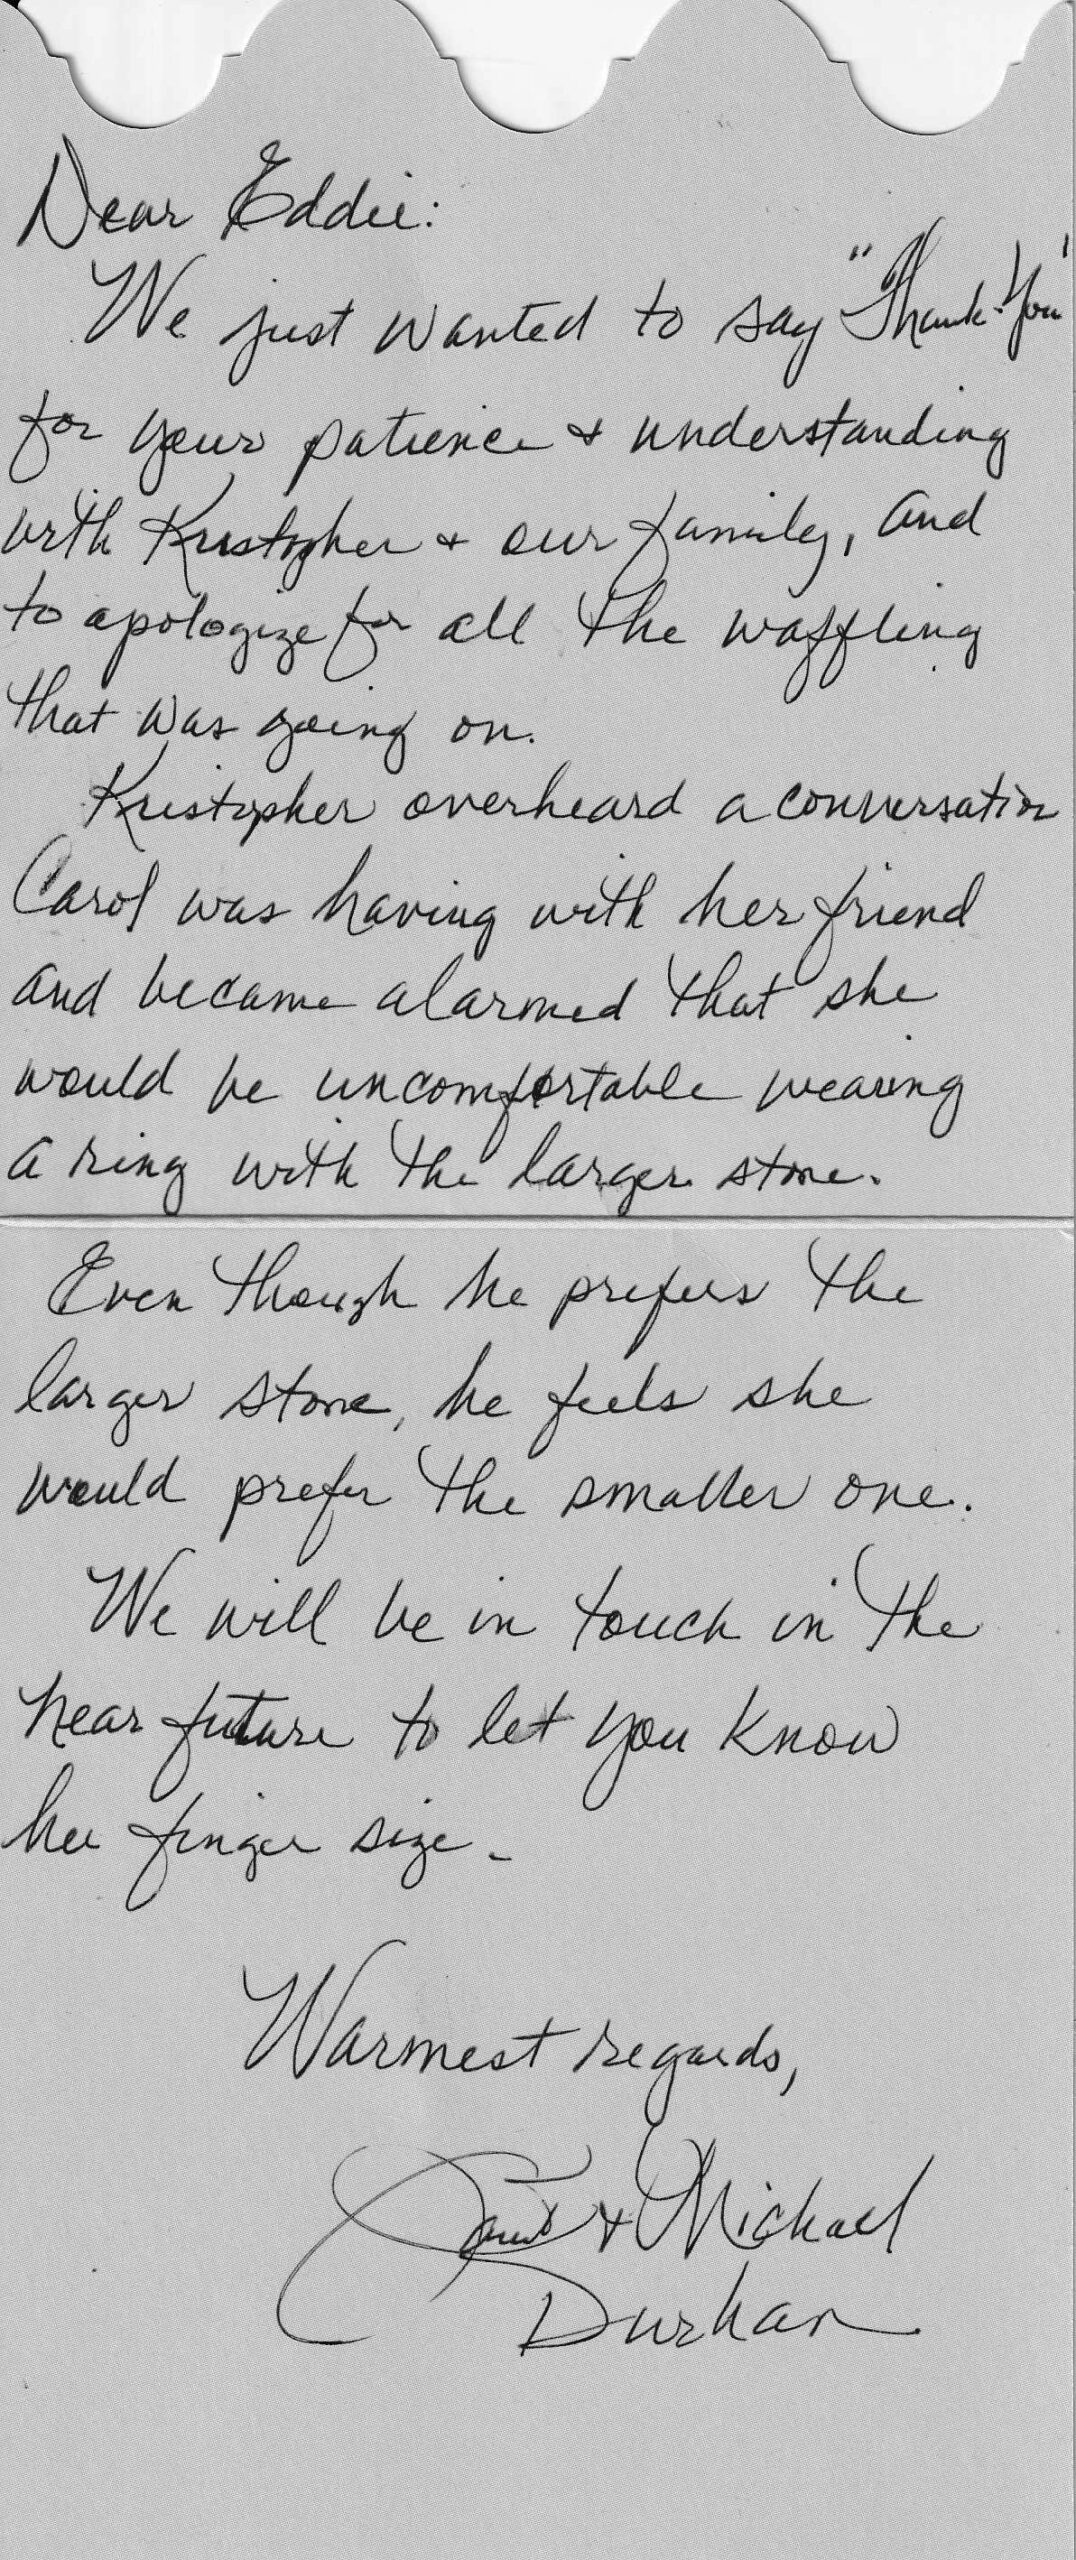 Dear Eddie:
We just wanted to say "Thank-You"
for your patience & understanding
with Kristopher & our family, and
to apologize for all the waffling
that was going on.
Kristopher overheard a conversation
Carol was having with her friend
and became alarmed that she
would be uncomfortable wearing
a ring with the larger stone.
Even though he prefers the
larger stone, he feels she
would prefer the smaller one.
We will be in touch in the
near future to let you know
her finger size.
Warmest regards,
& Michael